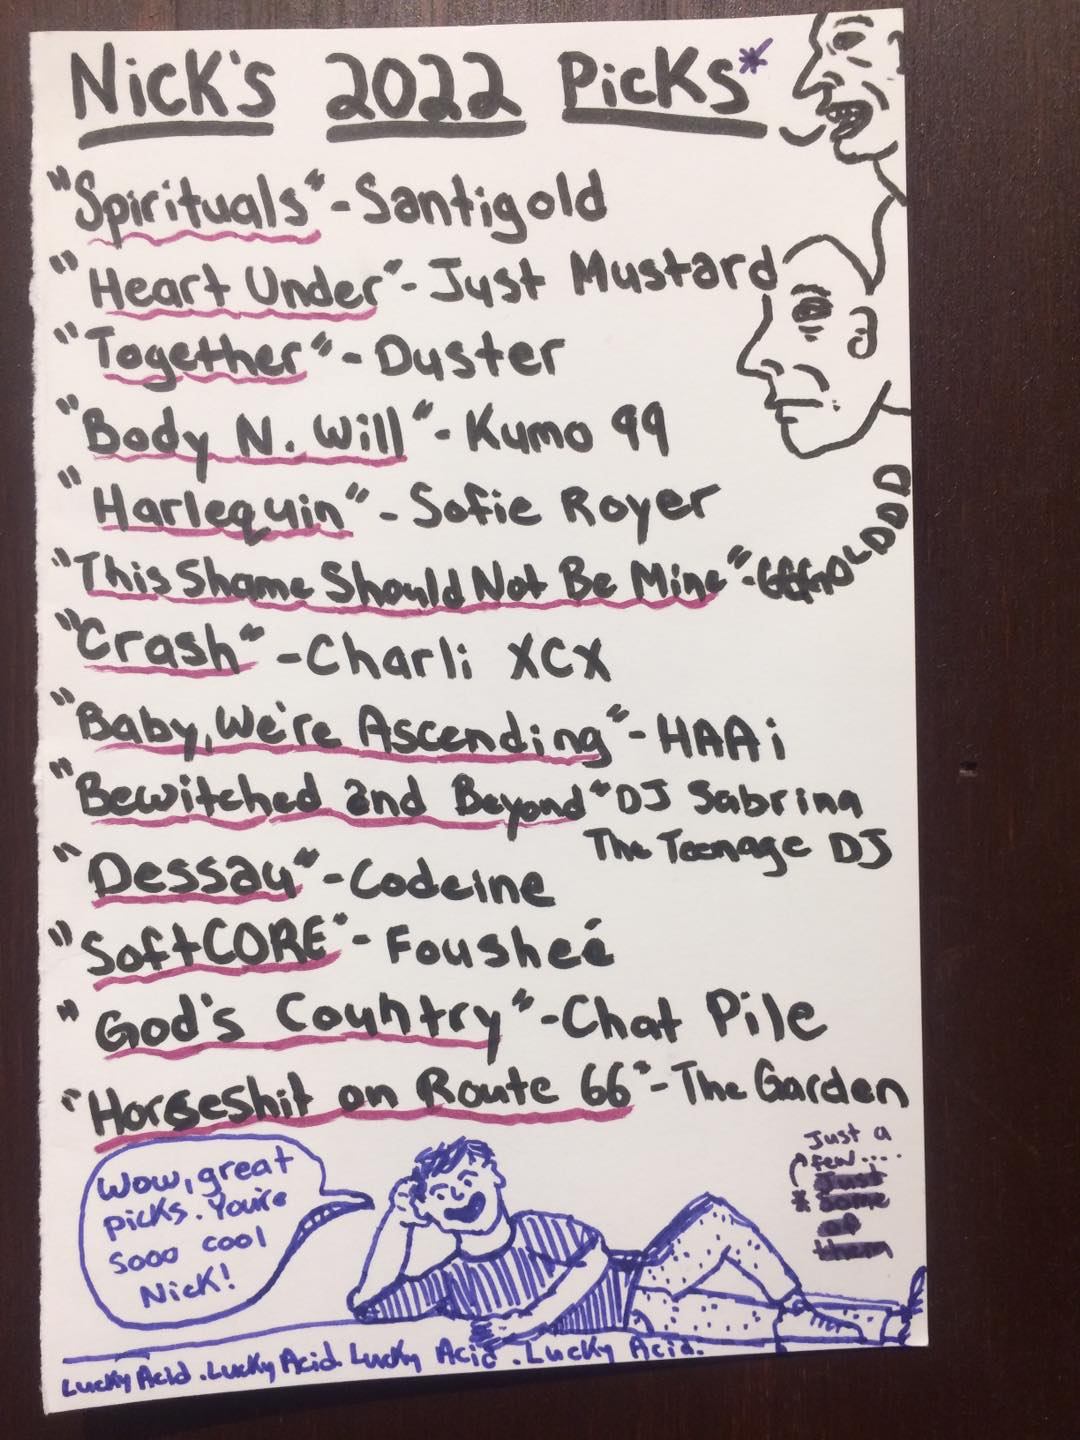 Nick's 2022 Picks*
"Spirituals" - Santigold
"Heart Under" - Just Mustard
"Together" - Duster
"Body N. Will" - Kumo 99
"Harlequin" - Sofie Royer
"This Shame Should Not Be Mine" -
"Crash" - Charli XCX
"Baby, We're Ascending" - HAAi
"Bewitched and Beyond" DJ Sabrina
The Teenage DJ
"Dessau" - Codeine
"SoftCORE" - Fousheé
"God's Country" - Chat Pile
"Horseshit on Route 66" - The Garden
Just a
few....
* Just
some
of
them
Wow, great
picks. You're
sooo cool
Nick!
Lucky Acid. Lucky Acid. Lucky Acid. Lucky Acid.